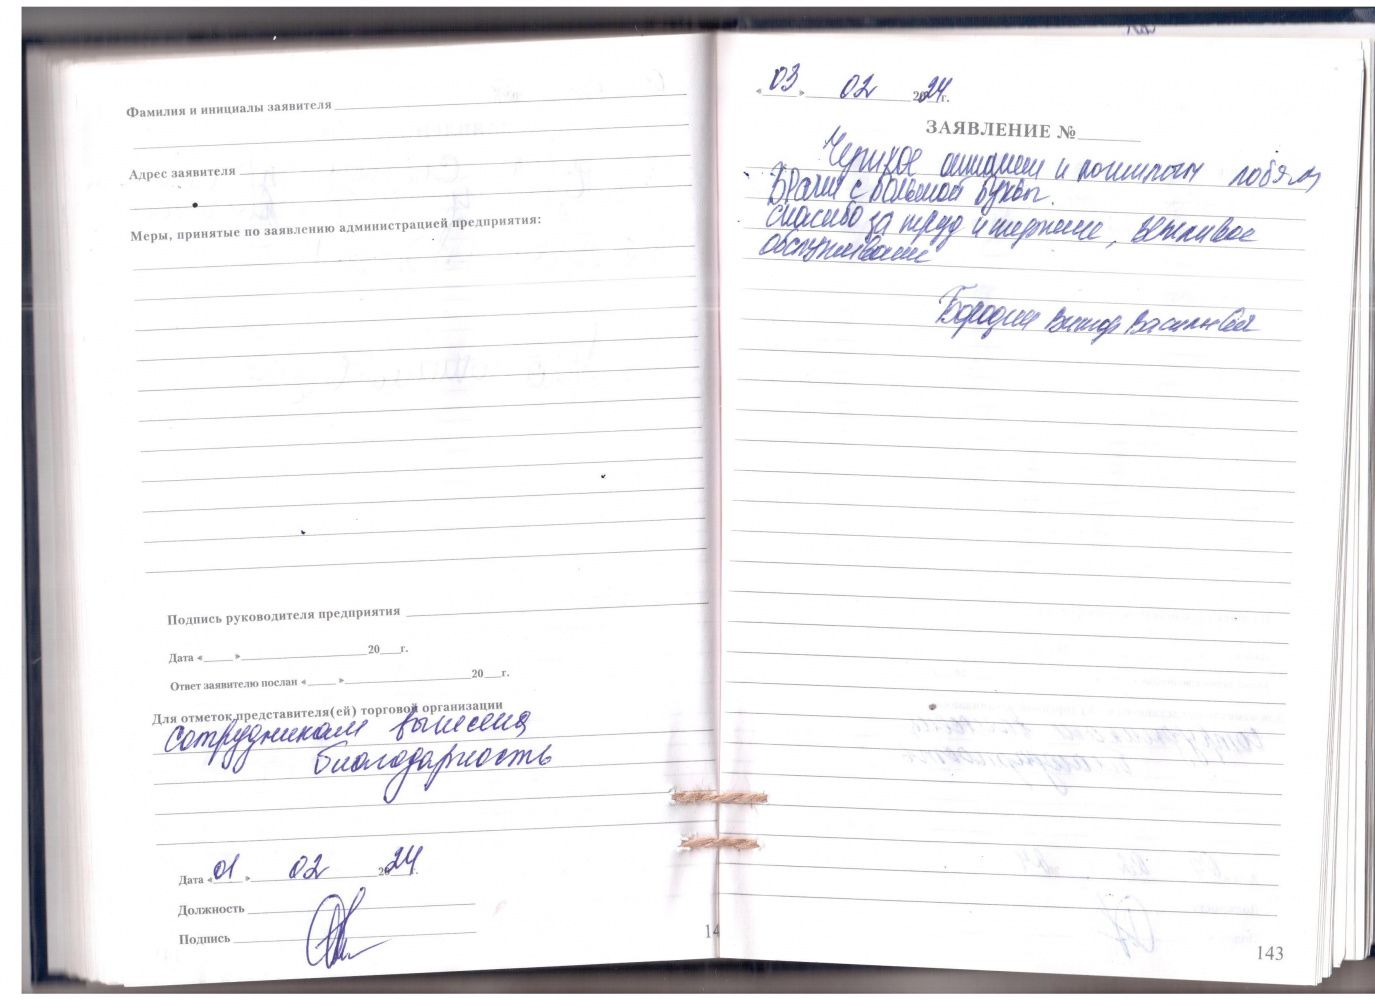 Фамилия и инициалы заявителя
Адрес заявителя
Меры, принятые по заявлению администрацией предприятия:
Подпись руководителя предприятия
Дата «___» ___ 20__г.
Ответ заявителю послан «___» ___ 20__г.
Для отметок представителя(ей) торговой организации
Сотрудникам вынесена
благодарность
Дата «01» 02 2024г.
Должность
Подпись
14
«03» 02 2024г.
ЗАЯВЛЕНИЕ №
Чуткое и
Врачи с большой буквы.
Спасибо за труд и терпение, вежливое
обслуживание
Бородин Виктор Васильевич
143